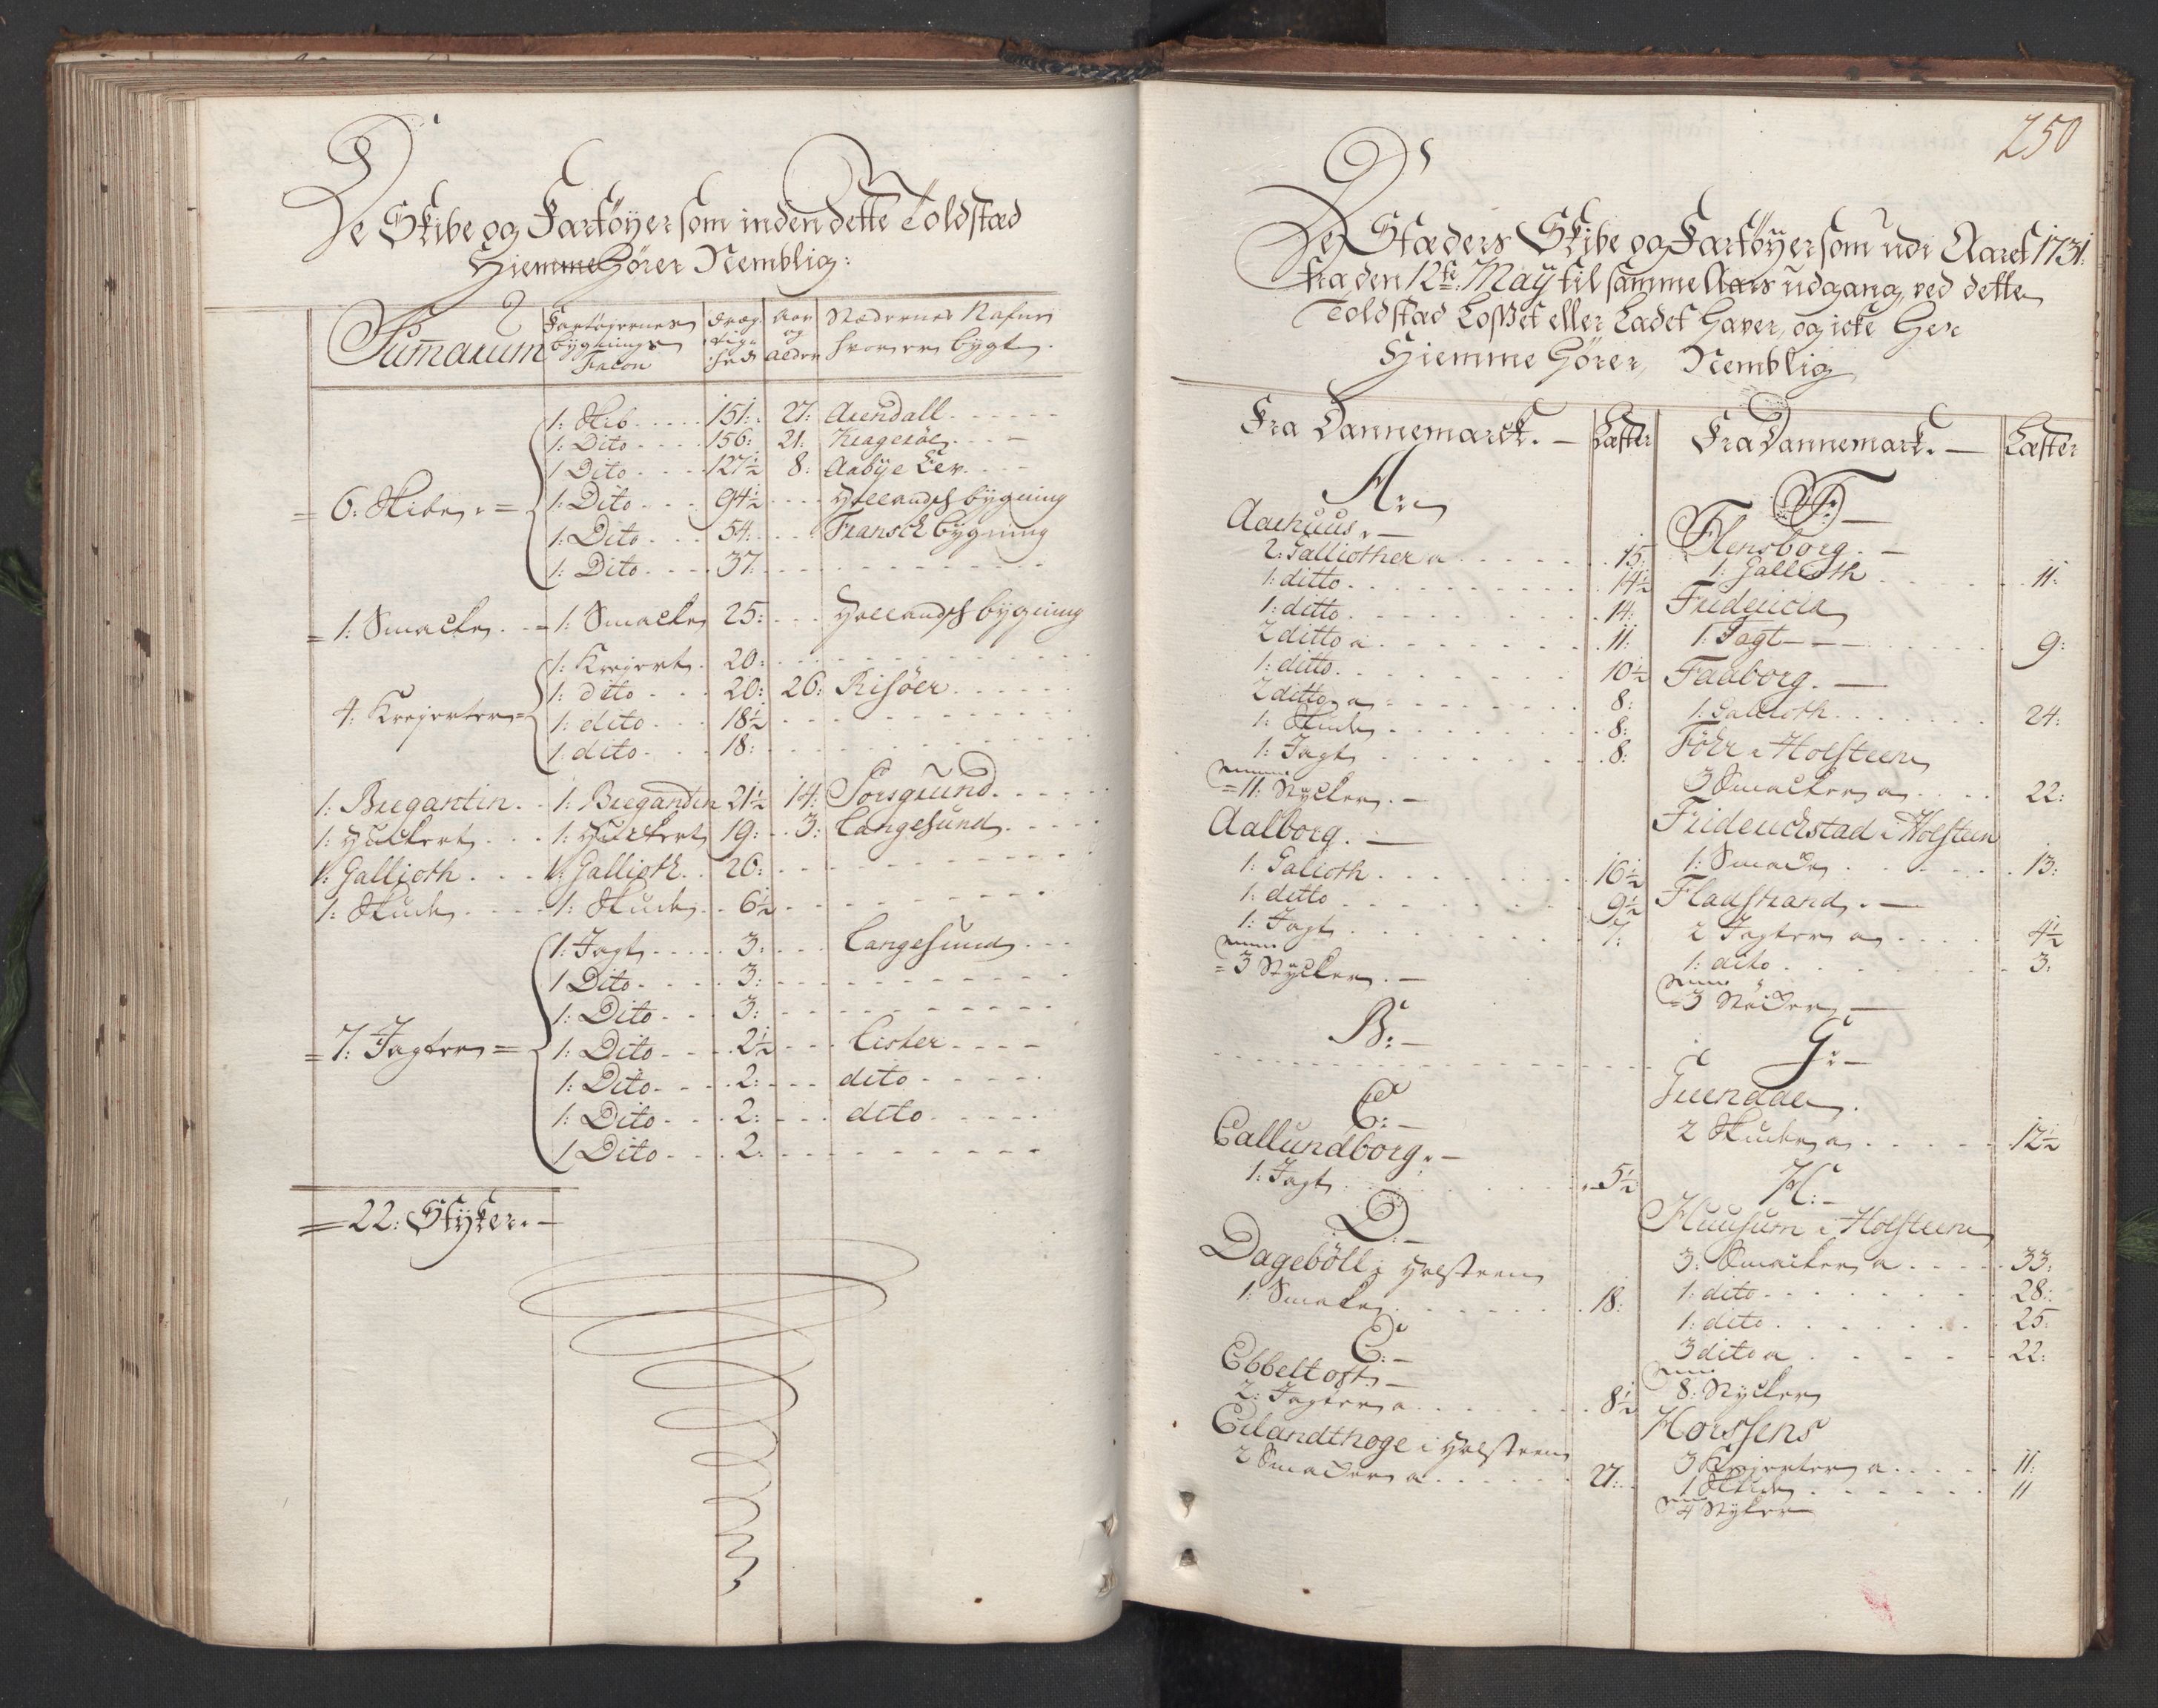 De Skibe og Fartøyer som inden dette Toldstæd
Hiemme Hører Nemblig:
Sumarum
Fartøiernes bygnings Facon
Dræg-tig-hed
Aar og alder
Stædernes Nafne hvor ere bygt.
1: Skib 151: 27: Arendall
1: Dito 156: 21: Kragerøe
1 Dito 127½ 8: Aabye Lev
= 6: Skibe = 1: Dito 94½ Hollandsch bygning
1: Dito 54: Fransch bygning
1: Dito 37:
= 1: Smacke = 1: Smacke 25: Hollandsch bygning
1: Krejert 20:
1: dito 20: 26: Risøer
4: Krejerter = 1: dito 18½
1 dito 18:
1: Bregantin 1: Bregandin 21½ 14: Porsgrund
1: Huckert 1: Huckert 19: 3: Langesund
1: Gallioth 1: Galliotk 26:
1: Skude 1: Skude 6½
1: Jagt 3: Langesund
1 Dito 3:
1: Dito 3:
= 7: Jagter = 1: Dito 2½ Lister
1: Dito 2: dito
1: Dito 2: dito
1 Dito 2.
= 22: Styker.
250
De Stæders Skibe og Fartøyer som udi Aaret 1731.
fra den 12te May til samme Aars udgang, ved dette
Toldstæd Losset eller Ladet Haver, og icke Her
Hiemme Hører, Nemblig
Fra Dannemarck. Læster
A:
Aarhuus.
2: Galliother a 15
1: ditto 14½
1: ditto 14:
2 ditto a 11:
1: ditto 10½
2 ditto a 8:
1: Skude 8:
1: Jagt 8:
= 11: Stycker.
Aalborg.
1: Galioth 16½
1: ditto 9½
1: Jagt 7:
= 3 Stycker.
B:
C:
Callundborg.
1: Jagt 5½
D:
Dagebøll i Holsteen
1: Smake 18:
E:
Ebbeltoft.
2: Jagter a 8½
Eilandthoge i Holsteen
2 Smacker a 27:
Fra Dannemarck. Læster
F:
Flensborg.
1: Gallioth 11:
Fridericia
1: Jagt 9:
Faaborg.
1: Gallioth 24:
Föhr i Holsteen
3 Smacker a 22:
Friderichstad i Holsteen
1: Smacke 13:
Fladstrand.
2 Jagter a 4½
1: dito 3:
= 3 Stöcker
G:
Grendaa.
2 Skuder a 12½
H:
Huusum i Holsteen
3: Smacker a 33:
1: dito 28:
1: dito 25.
3 dito a 22:
8: Stycker
Horssens
3 Krejerter a 11:
1 Skude 11
4 Styker